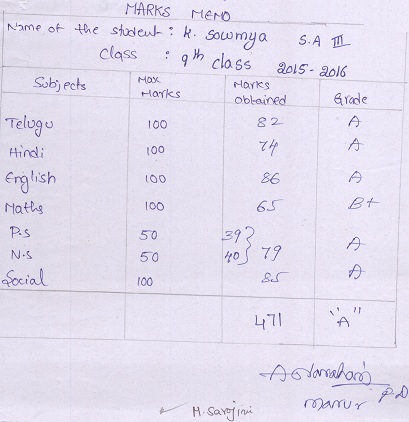 MARKS MEMO
Name of the student : K. Sowmya S.A III
Class : 9th class 2015-2016
Subjects Max Marks Marks obtained Grade
Telugu 100 82 A
Hindi 100 74 A
English 100 86 A
Maths 100 65 B+
P.S 50 39
N.S 50 40 } 79 A
Social 100 85 A
471 "A"
P.D
H. Sarojini